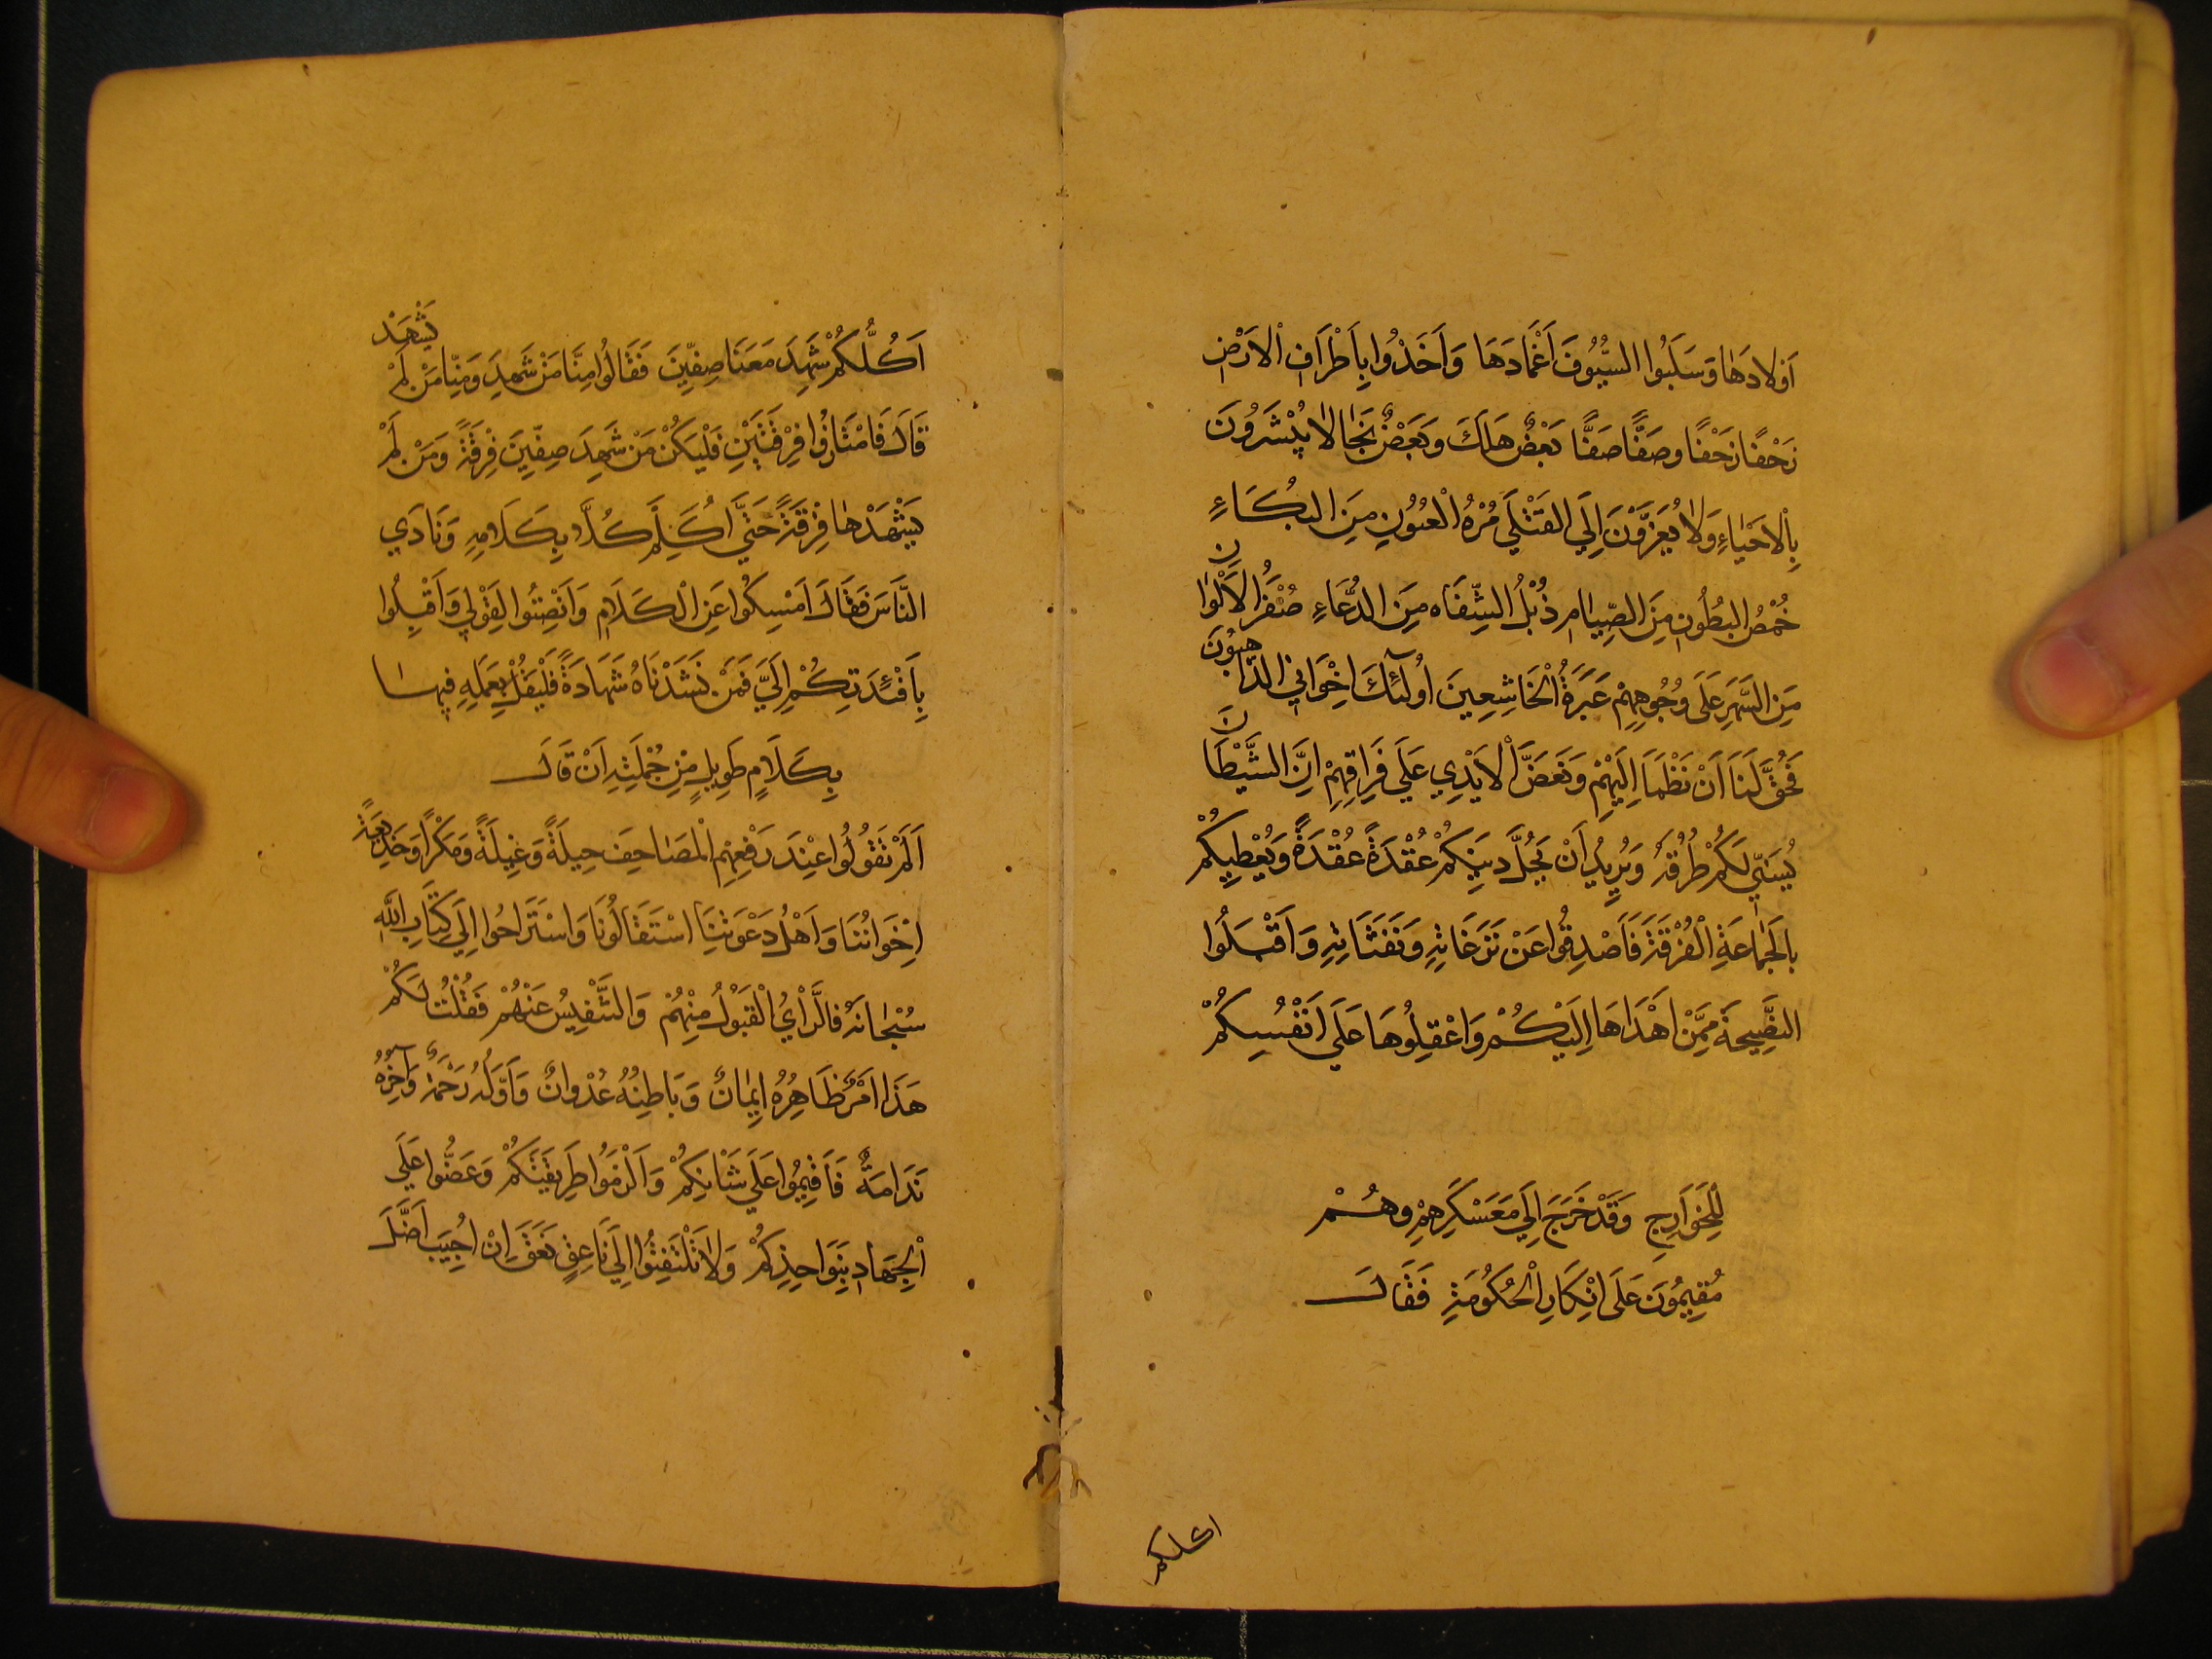 اَوْلادَهٰا وَسَلَبُوا السُّيُوفَ اَغْمَادَهَا وَاَخَذُوا بِاَطْرَافِ الْاَرْضِ
زَحْفًا زَحْفًا وصَفًّا صَفًّا بَعْضٌ هَلَكَ وبَعْضٌ نَجٰا لا يُبَشَّرُونَ
بِالْاَحْيٰاءِ وَلٰا يُعَزَّوْنَ اِلَي القَتْلَي مُرْهُ الْعُيُونِ مِنَ البُكَاءِ
خُمْصُ البُطُونِ مِنَ الصِّيٰامِ ذُبْلُ الشِّفَاه مِنَ الدُّعَاءِ صُفْرُ الاَلْوٰانِ
مِنَ السَّهَرِ عَلَى وُجُوهِهِمْ غَبَرَةُ الْخَاشِعِينَ اُولٓئكَ اِخْوَانِي الذّاهِبُونَ
فَحُقَّ لَنَا اَنْ نَظْمَاَ اِلَيْهِمْ وَنَعَضَّ الْاَيْدِي عَلَي فِرَاقِهِمْ اِنَّ الشَّيْطَانَ
يُسَنّي لَكُمْ طُرُقَهُ وَيُرِيدُ اَنْ يَحُلَّ دينَكُمْ عُقْدَةً عُقْدَةً وَيُعْطِيكُمْ
بالْجَمٰاعَةِ الْفُرْقَةَ فَاَصْدِفُوا عَنْ نَزَغَاتِهِ وَنَفَثَاتِهِ وَاَقْبَلُوا
النَّصِيحَةَ مِمَّنْ اَهْدَاهَا اِلَيْكُمْ وَاعْقِلُوهَا عَلَى اَنْفُسِكُمْ
لِلْخَوَارِجِ وَقَدْ خَرَجَ اِلَي مَعَسْكَرِهِمْ وهُمْ
مُقِيمُونَ عَلَى اِنْكَارِ الْحُكُومَةِ فَقَالَ
اكلكم
اَكُلُّكُمْ شَهِدَ مَعَنَا صِفِّينَ فَقَالُوا مِنَّا مَنْ شَهِدَ وَمِنّٰا مَنْ لَمْ يَشْهَدْ
قَالَ فَامْتَازُوا فِرْقَتَيْنِ فَلْيَكُنْ مَنْ شَهِدَ صِفّينَ فِرْقَةً وَمَنْ لَمْ
يَشْهَدْهٰا فِرْقَةً حَتَّي اُكَلِّمَ كُلًّا بِكَلَامِهِ وَنَادَي
النَّاسَ فَقَالَ اَمْسِكُوا عَنِ الْكَلَامِ وَاَنْصِتُوا لِقَوْلِي وَاَقْبِلُوا
بِاَفْئِدَتِكُمْ اِلَيَّ فَمَنْ نَشَدْنَاهُ شَهَادَةً فَلْيَقُلْ بِعِلْمِهِ فِيهٰا
بِكَلَامٍ طَوِيلٍ مِنْ جُمْلَتِهِ اَنْ قَالَ
اَلَمْ تَقُولُوا عِنْدَ رَفْعِهِمِ الْمَصَاحِفَ حِيلَةً وَغِيلَةً وَمَكْرًا وَخَدِيعَةً
اِخْوَانُنَا وَاَهْلُ دَعْوَتِنَا اسْتَقَالُونَا وَاسْتَرَاحُوا اِلَي كِتَابِ اللّٰهِ
سُبْحٰانَهُ فَالرَّاْيُ الْقَبُولُ مِنْهُمْ وَالتَّنْفِيسُ عَنْهُمْ فَقُلْتُ لَكُمْ
هَذَا اَمْرٌ ظَاهِرُهُ اِيمٰانٌ وَبَاطِنُهُ عُدْوانٌ وَاَوّلُهُ رَحْمَةٌ وَآخِرُهُ
نَدَامَةٌ فَاَقِيمُوا عَلَى شَاْنِكُمْ وَاَلْزَمُوا طَرِيقَتَكُمْ وَعَضُّوا عَلَي
الْجِهَادِ بِنَوَاجِذِكُمْ وَلاٰ تَلْتَفِتُوا اِلَي نَاعِقٍ نَعَقَ اِنْ اُجِيبَ اَضَلَّ